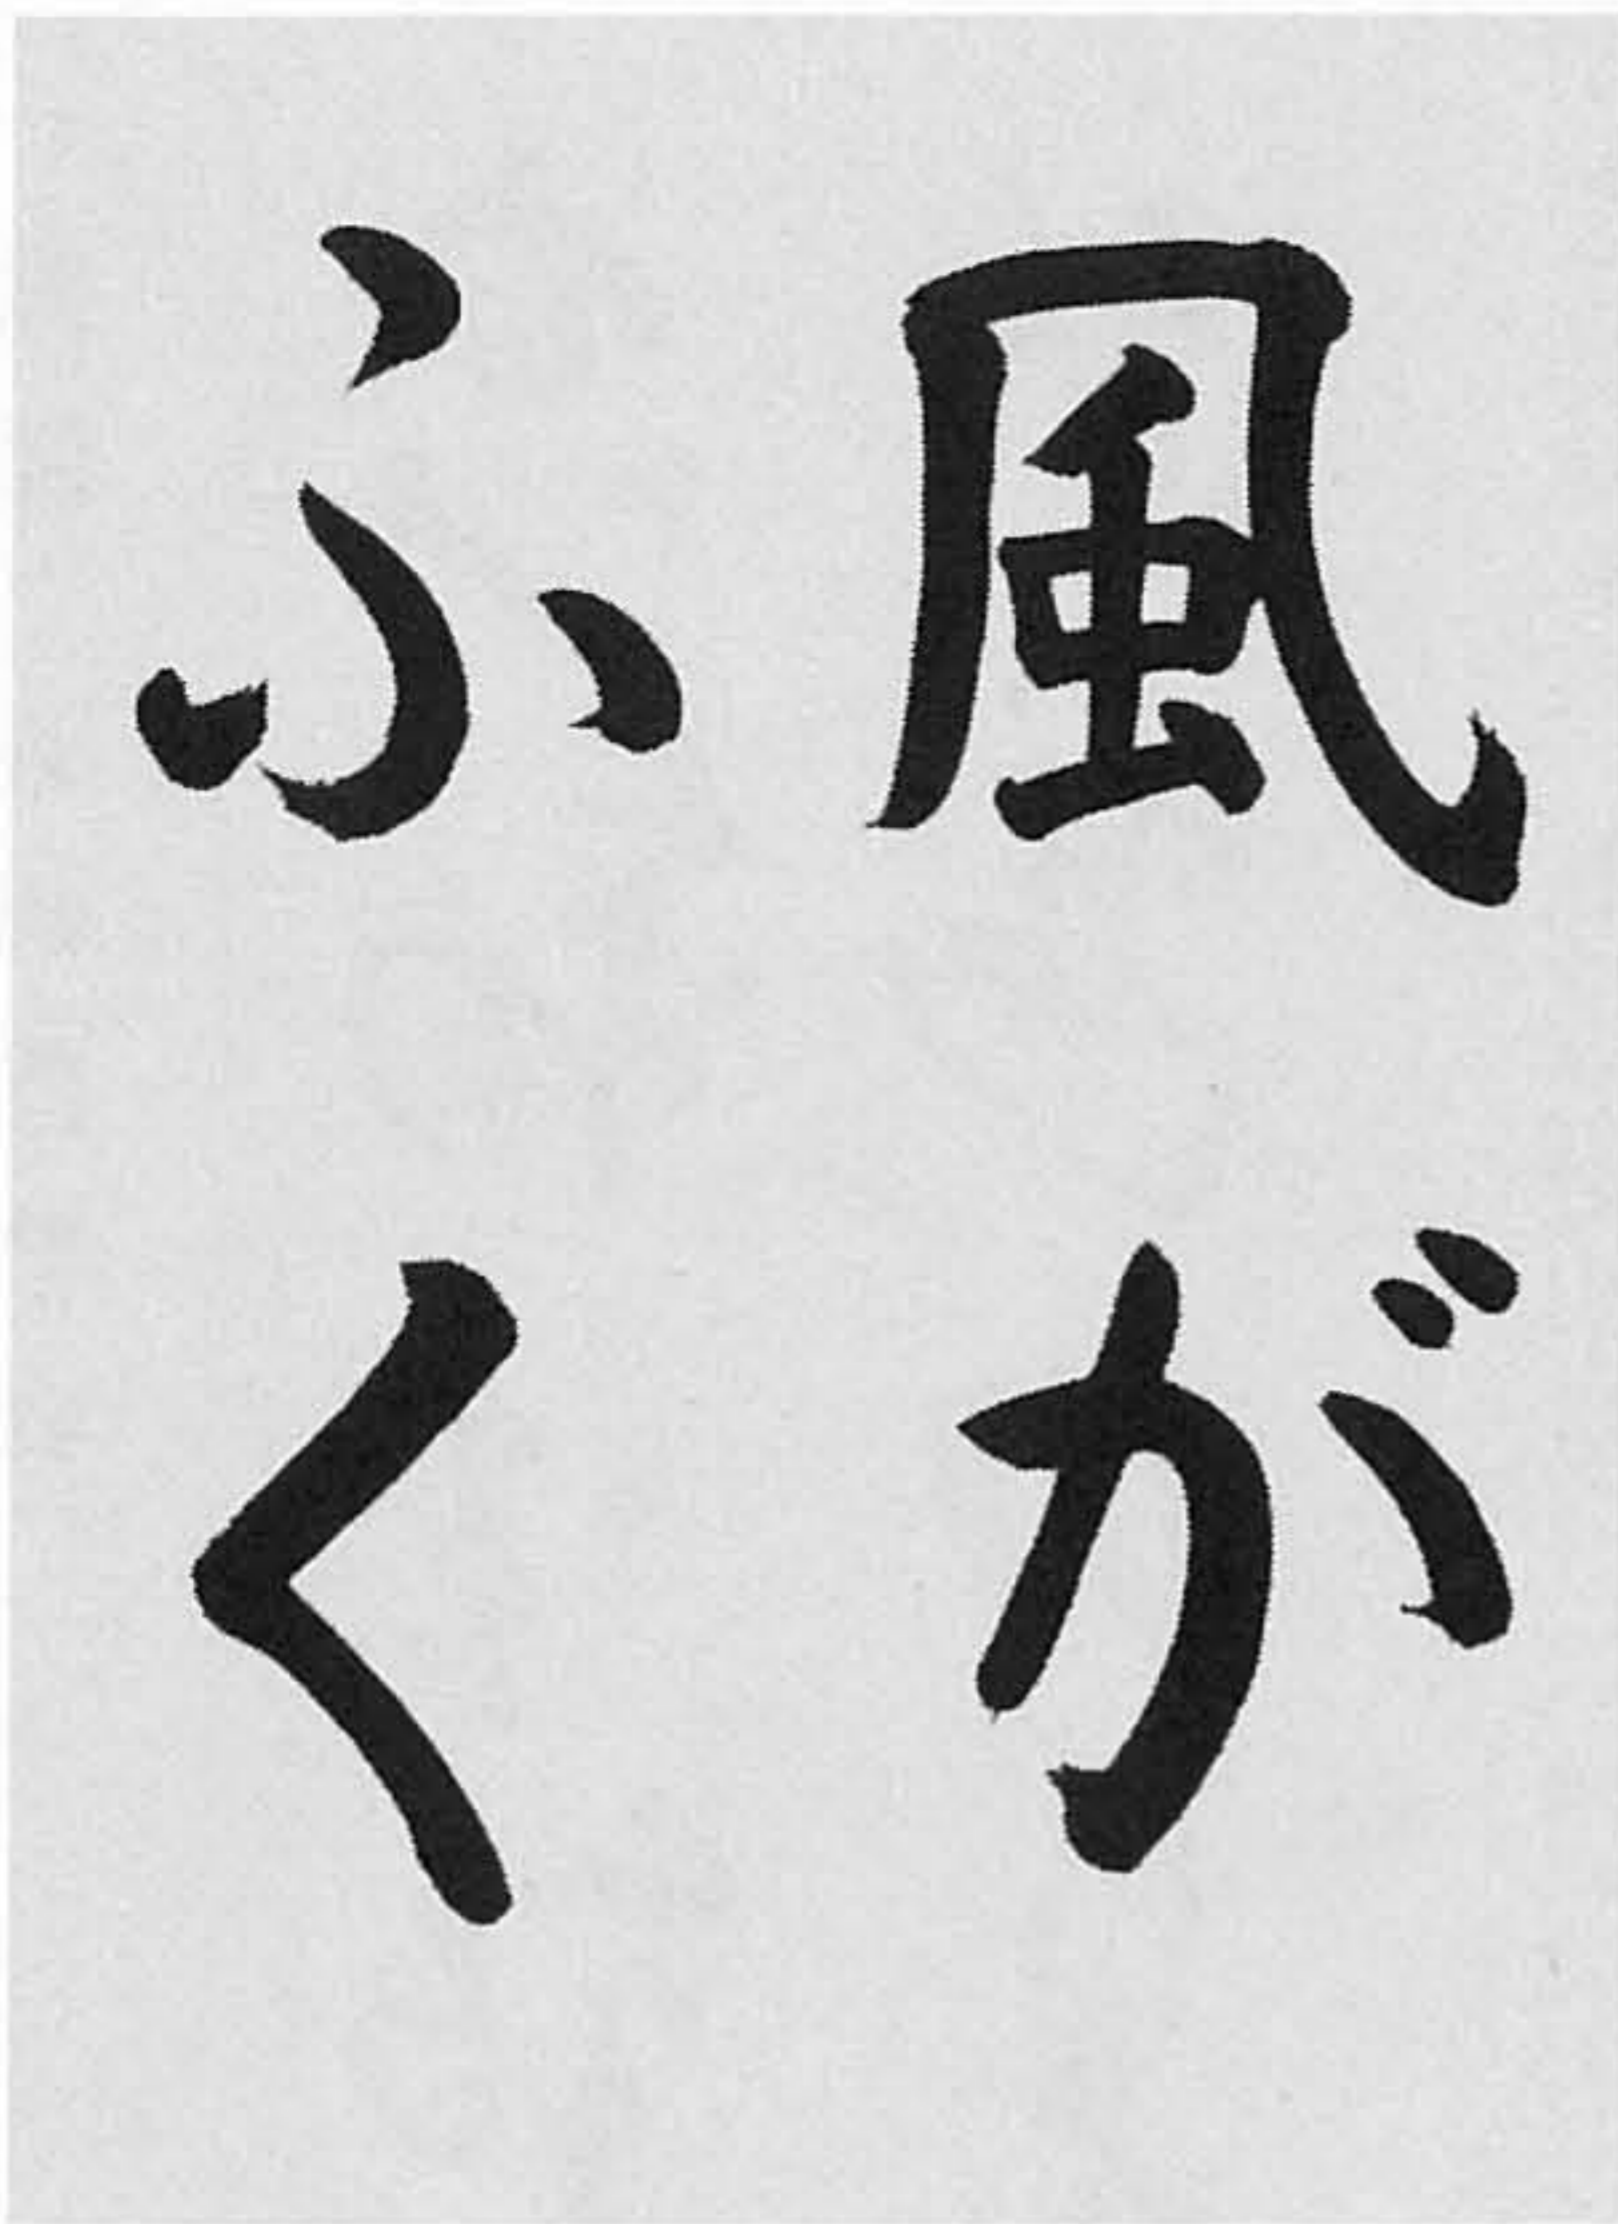 風が
ふく